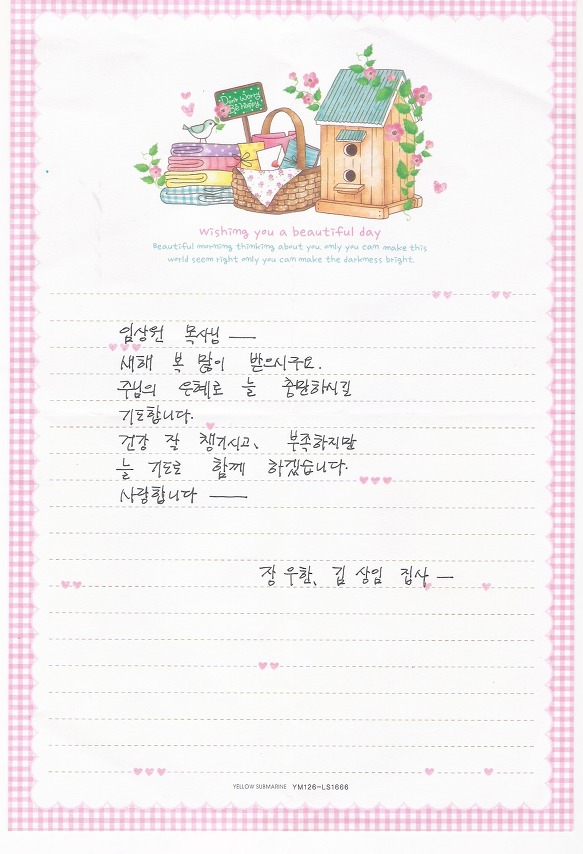 Don't Worry
Be Happy
wishing you a beautiful day
Beautiful morning thinking about you, only you can make this
world seem right only you can make the darkness bright.
임상원 목사님 —
새해 복 많이 받으시구요.
주님의 은혜로 늘 충만하시길
기도합니다.
건강 잘 챙기시고, 부족하지만
늘 기도로 함께 하겠습니다.
사랑합니다 —
장우환, 김상임 집사 —
YELLOW SUBMARINE YM126-LS1666